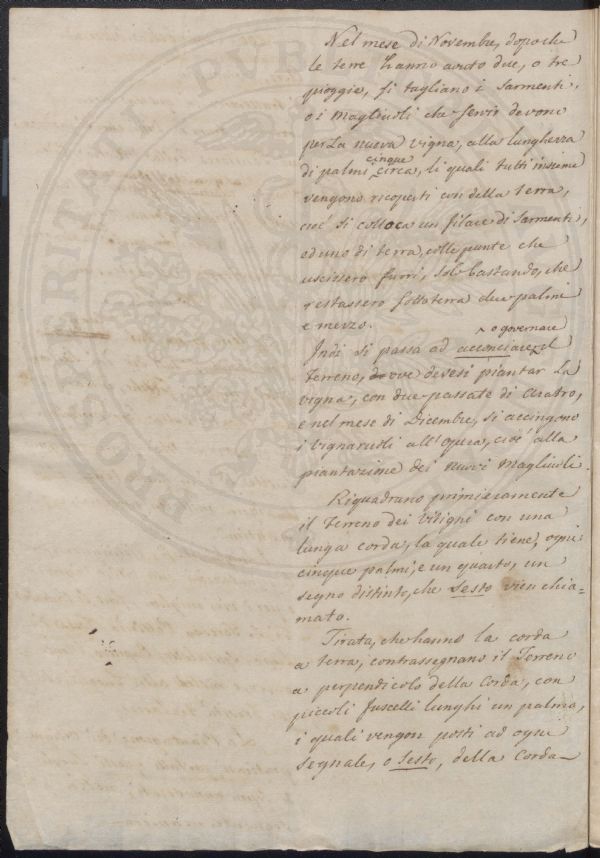 Nel mese di Novembre, dopoche
le terre hanno avuto due, o tre
pioggie, si tagliano i Sarmenti,
o i Magliuoli che servir devono
per la nuova vigna, alla lunghezza
di palmi cinque circa, li quali tutti insieme
vengono ricoperti con della terra,
cioè si colloca un filare di Sarmenti,
ed uno di terra, colle punte che
uscissero fuori, sol bastando, che
restassero sottoterra due palmi
e mezzo.
Indi si passa ad acconciare o governare il
Terreno, dove devesi piantar la
vigna, con due passate di Aratro,
e nel mese di Dicembre, si accingono
i vignaruoli all'opera, cioè alla
piantazione dei nuovi Magliuoli.
Riquadrano primieramente
il Terreno dei Vitigni con una
lunga corda, la quale tiene, ogni
cinque palmi, e un quarto, un
segno distinto, che Sesto vien chia=
mato.
Tirata, che hanno la corda
a terra, contrassegnano il Terreno
a perpendicolo della Corda, con
piccoli fuscelli lunghi un palmo,
i quali vengon posti ad ogni
segnale, o Sesto, della Corda
PROSPERITATI PUBLI